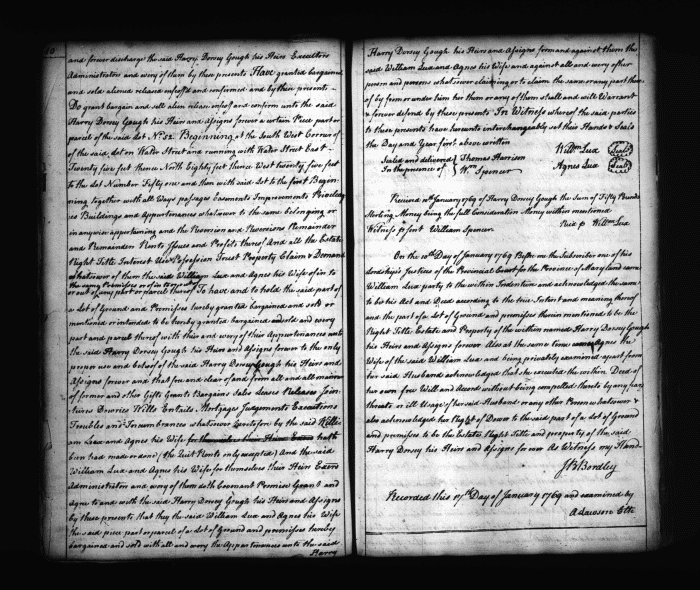 and forever discharge the said Harry Dorsey Gough his Heirs Executors
Administrators and every of them by these presents Have granted bargained
and sold aliened released infeoffd and confirmed and by these present
Do grant bargain and sell alien release infeoff and confirm unto the said
Harry Dorsey Gough his Heirs and Assigns forever a certain Piece part or
parcel of the said dot No. 52. Beginning at the South West Corner of
of the said dot on Water Street and running with Water Street East
Twenty five feet thence North Eighty feet thence West twenty five feet
to the dot Number Fifty one and then with said dot to the first Begin
ning together with all Ways passages Easments Improvements Priviledg
es Buildings and Appurtenances whatsoever to the same belonging or
in anywise appertaining and the Reversion and Reversions Remainder
and Remainders Rents Issues and Profits thereof And all the Estate
Right Title Interest Use Possession Trust Property Claim & Demand
whatsoever of them the said William Lux and Agnes his Wife of in to
the same Premises or of in to
or out of any part or parcel thereof To have and to hold the said part of
a dot of Ground and Premisses hereby granted bargained and sold or
mentioned or intended to be hereby granted bargained and sold and every
part and parcel thereof with their and every of their Appurtenances unto
the said Harry Dorsey Gough his Heirs and Assigns forever to the only
proper use and behoof of the said Harry Dorsey Gough his Heirs and
Assigns forever and that free and clear of and from all and all manner
of former and other Gifts Grants Bargains Sales Leases Releases Join
tures Doweries Wills Entails Mortgages Judgements Executions
Troubles and Incumbrances whatsoever by the said Willi
am Lux and Agnes his Wife
been had made or done (the Quit Rents only excepted) And the said
William Lux and Agnes his Wife for themselves their Heirs Exers
Administrators and every of them doth Covenant Promise Grant and
agree to and with the said Harry Dorsey Gough his Heirs and Assigns
by these presents that they the said William Lux and Agnes his Wife
the said piece part or parcel of a dot of Ground and premisses hereby
bargained and sold with all and every the Appurtenances unto the said
Harry
Harry Dorsey Gough his Heirs and Assigns for and against them the
said William Lux and Agnes his Wife and against all and every other
person and persons whatsoever claiming or to claim the same or any part there
of by from or under him her them or any of them shall and will Warrant
& forever defend by these presents In Witness whereof the said parties
to these presents have hereunto interchangeably set their Hands & Seals
the Day and Year first above written
Sealed and delivered Thomas Harrison Willm Lux Seal
In the presence of Wm Spencer Agnes Lux Seal
Received 10th January 1769 of Harry Dorsey Gough the Sum of Fifty Pounds
Sterling Money being the full Consideration Money within mentioned
Witness William Spencer. Willm Lux
On the 10th Day of January 1769 Before me the Subscriber one of his
Lordship's Justices of the Provincial Court for the Province of Maryland came
William Lux party to the within Indenture and acknowledged the same
to be his Act and Deed according to the true Intent and meaning thereof
and the part of a dot of Ground and premises therein mentioned to be the
Right Title Estate and Property of the within named Harry Dorsey Gough
his Heirs and Assigns forever Also at the same time Agnes the
Wife of the said William Lux and being privately examined apart from
her said Husband acknowledged that she executed the within Deed of
her own free Will and Accord without being compelled thereto by any
threats or ill Usage of her said Husband or any other Person whatsoever &
also acknowledged her Right of Dower to the said part of a dot of Ground
and premisses to be the Estate Right Title and property of the said
Harry Dorsey Gough his Heirs and Assigns for ever As Witness my Hand
JB Bordley
Recorded this 17th Day of January 1769 and examined by